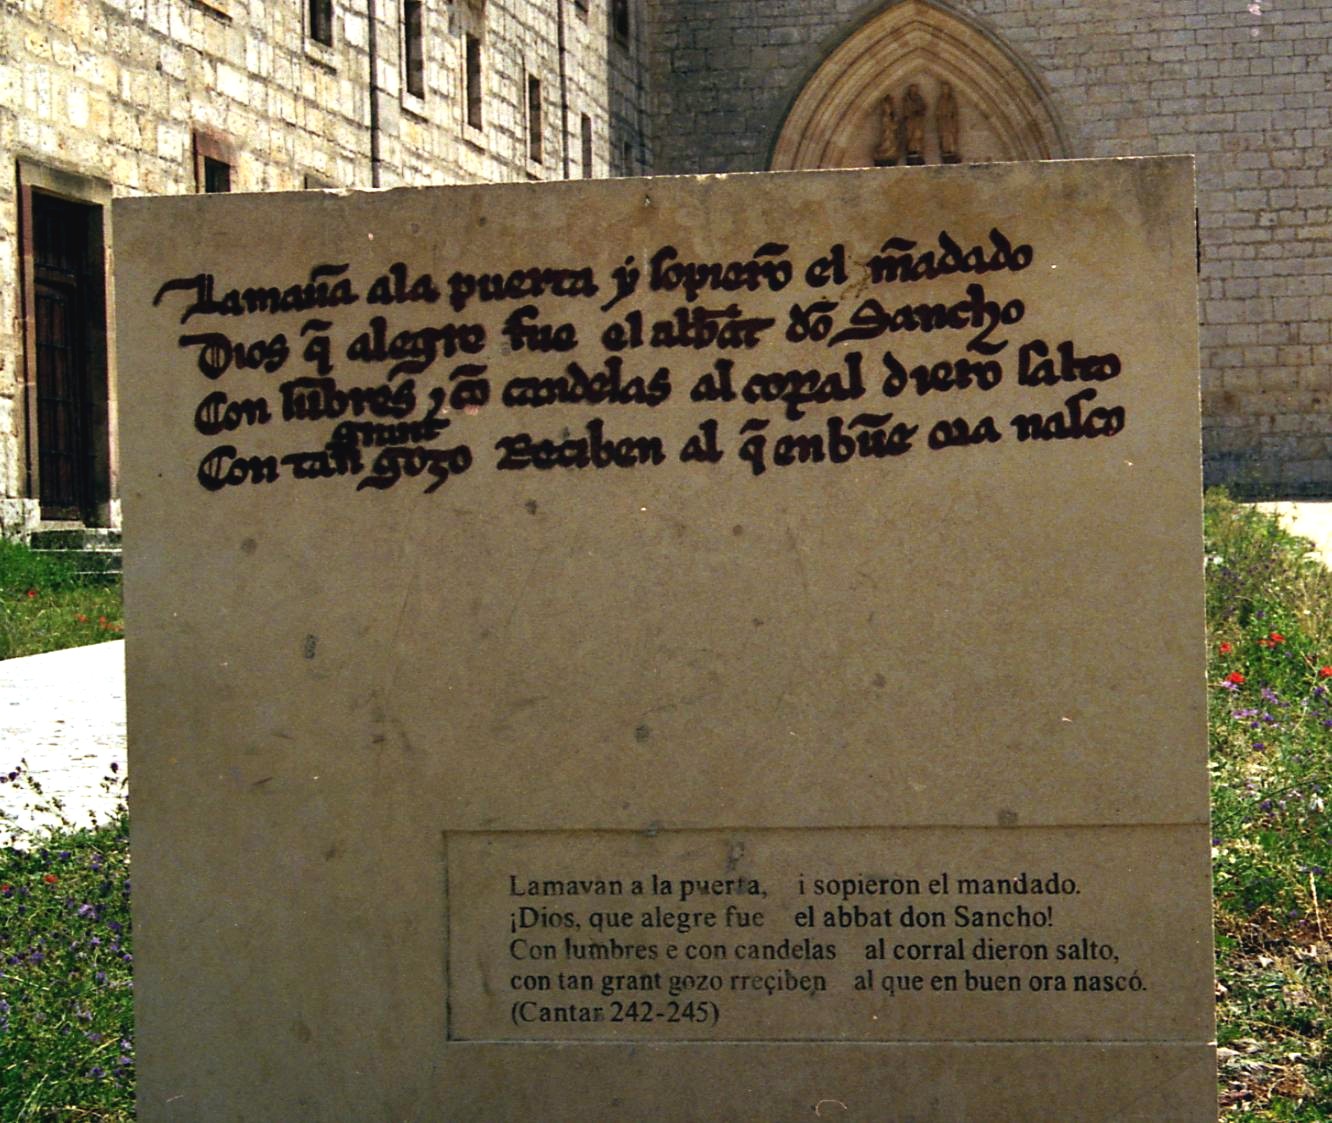 Lamauā ala puerta ẏ sopierō el mādado
Dios q̄ alegre fue el abbat dō Sancho
Con lūbres ⁊ cō candelas al corral dierō salto
grant
Con tan gozo Reciben al q̄ en buē ora nasco
Lamavan a la puerta, i sopieron el mandado.
¡Dios, que alegre fue el abbat don Sancho!
Con lumbres e con candelas al corral dieron salto,
con tan grant gozo rreçiben al que en buen ora nascó.
(Cantar 242-245)